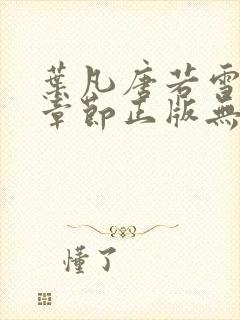 葉凡唐若雪
章節正版無
懂了